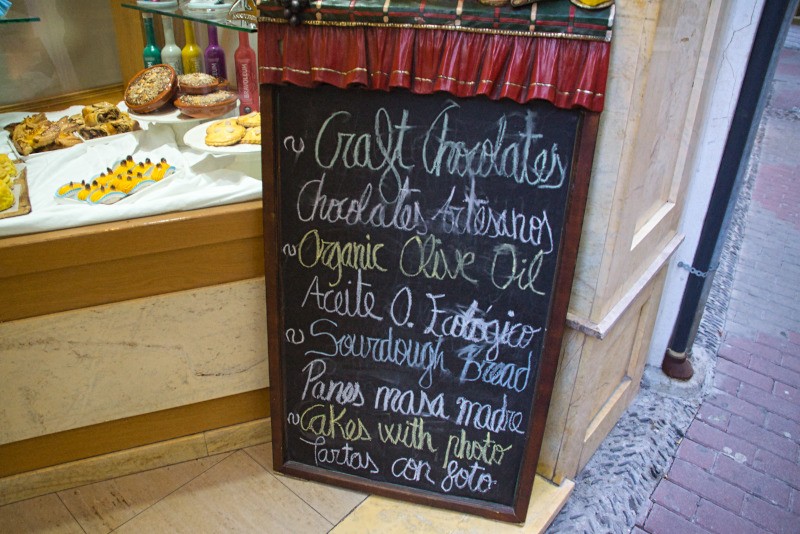 ~ Craft Chocolates
Chocolates Artesanos
~ Organic Olive Oil
Aceite O. Ecológico
~ Sourdough Bread
Panes masa madre
~ Cakes with photo
Tartas con foto